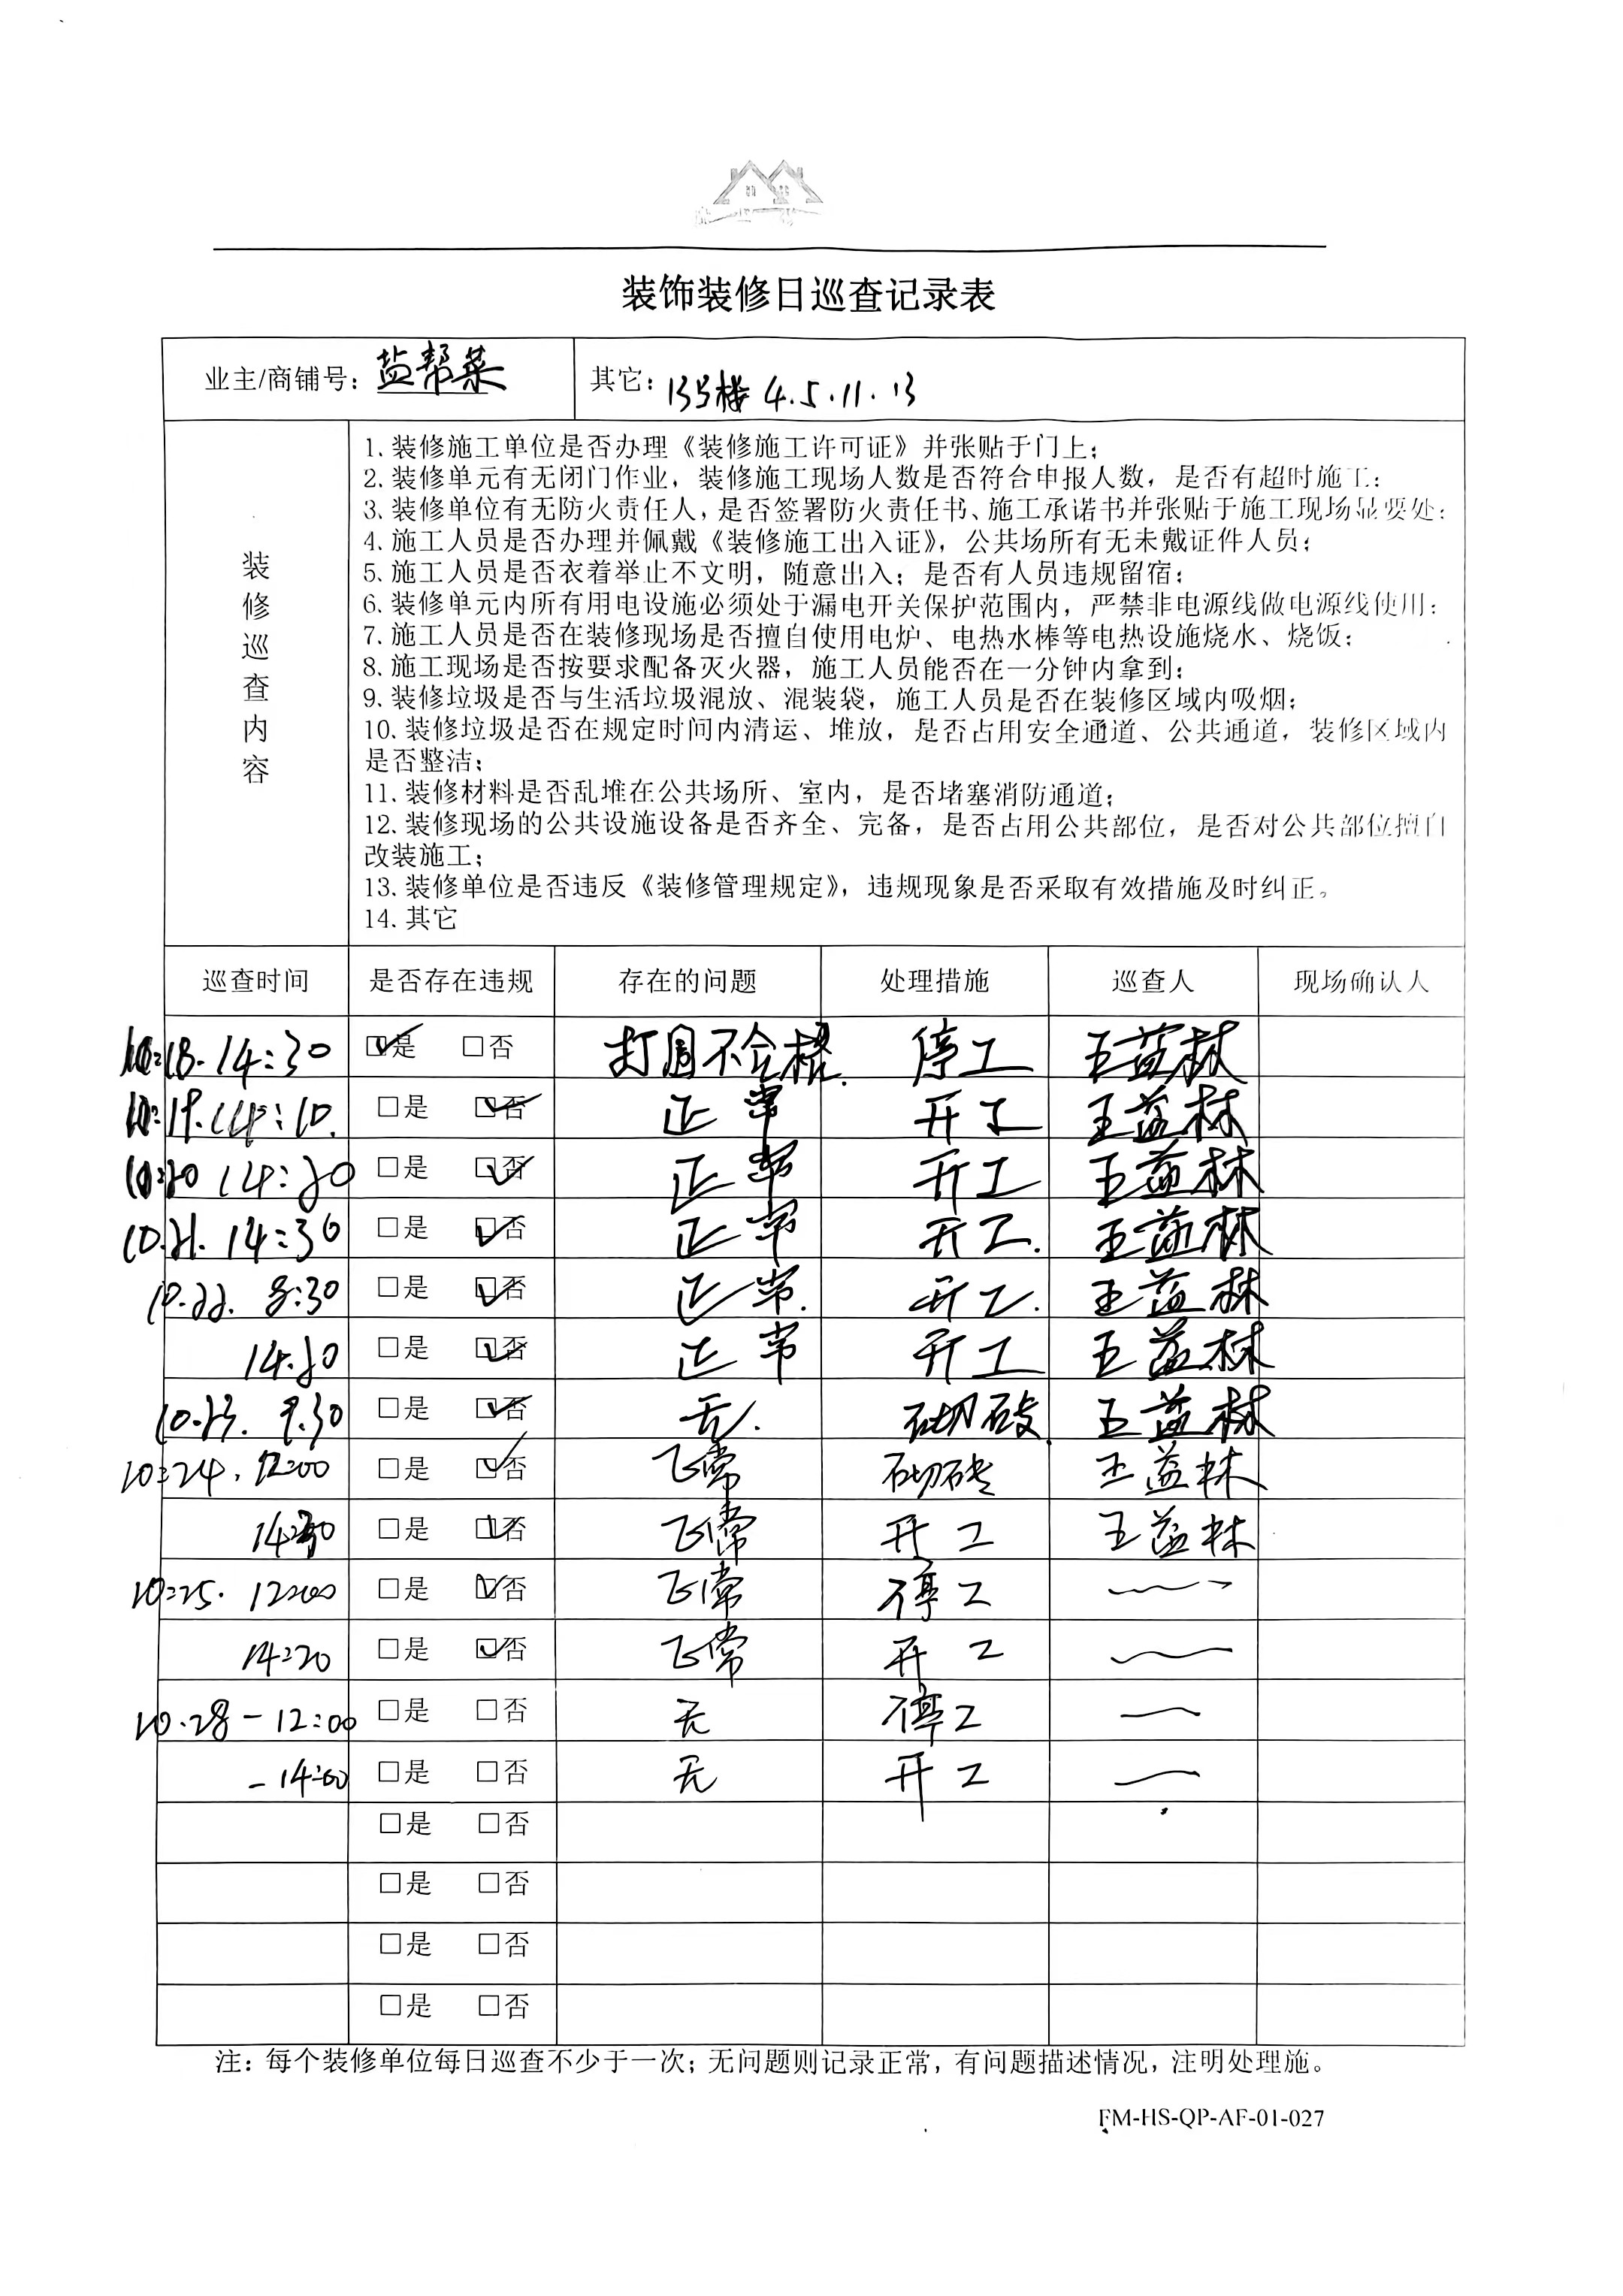 装饰装修日巡查记录表
业主/商铺号：盐帮菜 其它：13号楼 4.5.11.13
装修巡查内容
1. 装修施工单位是否办理《装修施工许可证》并张贴于门上；
2. 装修单元有无闭门作业，装修施工现场人数是否符合申报人数，是否有超时施工；
3. 装修单位有无防火责任人，是否签署防火责任书、施工承诺书并张贴于施工现场显要处；
4. 施工人员是否办理并佩戴《装修施工出入证》，公共场所有无未戴证件人员；
5. 施工人员是否衣着举止不文明，随意出入；是否有人员违规留宿；
6. 装修单元内所有用电设施必须处于漏电开关保护范围内，严禁非电源线做电源线使用；
7. 施工人员是否在装修现场是否擅自使用电炉、电热水棒等电热设施烧水、烧饭；
8. 施工现场是否按要求配备灭火器，施工人员能否在一分钟内拿到；
9. 装修垃圾是否与生活垃圾混放、混装袋，施工人员是否在装修区域内吸烟；
10. 装修垃圾是否在规定时间内清运、堆放，是否占用安全通道、公共通道，装修区域内
是否整洁；
11. 装修材料是否乱堆在公共场所、室内，是否堵塞消防通道；
12. 装修现场的公共设施设备是否齐全、完备，是否占用公共部位，是否对公共部位擅自
改装施工；
13. 装修单位是否违反《装修管理规定》，违规现象是否采取有效措施及时纠正。
14. 其它
巡查时间 是否存在违规 存在的问题 处理措施 巡查人 现场确认人
10:18. 14:30 ☑是 □否 打围不合格. 停工 王益林
10:19. 14:10. □是 ☑否 正常 开工 王益林
10:20 14:20 □是 ☑否 正常 开工 王益林
10.21. 14:30 □是 ☑否 正常 开工. 王益林
10.22. 8:30 □是 ☑否 正常. 开工. 王益林
14.20 □是 ☑否 正常 开工 王益林
10.23. 9.30 □是 ☑否 无. 砌砖. 王益林
10:24. 12:00 □是 ☑否 正常 砌砖 王益林
14:30 □是 ☑否 正常 开工 王益林
10:25. 12:00 □是 ☑否 正常 停工
14:20 □是 ☑否 正常 开工
10.28-12:00 □是 □否 无 停工
-14:00 □是 □否 无 开工
□是 □否
□是 □否
□是 □否
□是 □否
注：每个装修单位每日巡查不少于一次；无问题则记录正常，有问题描述情况，注明处理施。
FM-HS-QP-AF-01-027